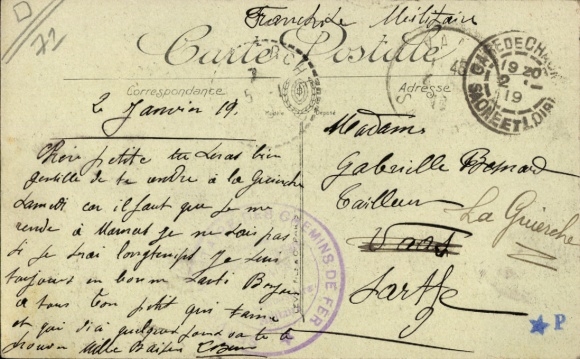 Franchise Militaire
72
Carte Postale
Correspondance
Adresse
GARE DE CHA
19 20
2
19
SAONE ET LOIRE
2 Janvier 19.
Chère petite tu seras bien
gentille de te rendre à la Guierche
Samedi car il faut que je me
rende à je ne sais pas
si je serai longtemps je suis
toujours en bonne santé
à tous ton petit qui t'aime
et qui d'ici quelques jours va te
trouver Mille Baisers
Madame
Gabrielle
Tailleur
Sarthe
La Guierche
CHEMINS DE FER
P